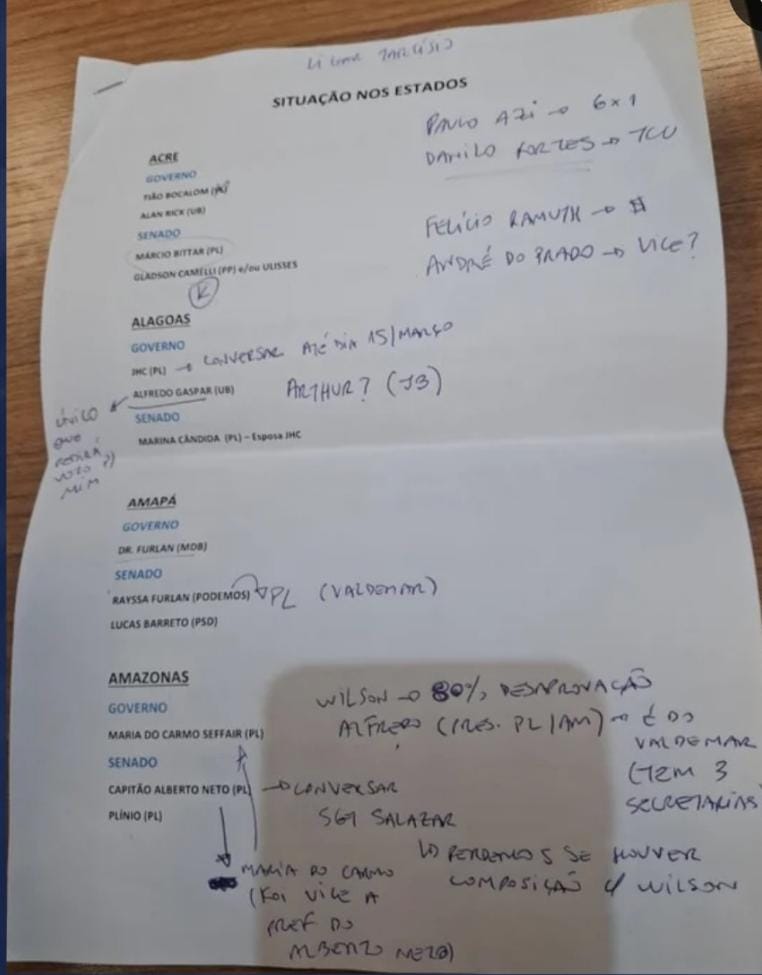 LIGAR TARCÍSIO
SITUAÇÃO NOS ESTADOS
PAULO AZI → 6x1
DANILO FORTES → TCU
FELÍCIO RAMUTH → $
ANDRÉ DO PRADO → VICE?
ACRE
GOVERNO
TIÃO BOCALOM
ALAN RICK (UB)
SENADO
MÁRCIO BITTAR (PL)
GLADSON CAMELLI (PP) e/ou ULISSES
K
ALAGOAS
GOVERNO
JHC (PL) → CONVERSAR ATÉ DIA 15/MARÇO
ALFREDO GASPAR (UB)
ARTHUR? (JB)
ÚNICO
QUE
PEDIRÁ
VOTO P/
MIM
SENADO
MARINA CÂNDIDA (PL) – Esposa JHC
AMAPÁ
GOVERNO
DR. FURLAN (MDB)
SENADO
RAYSSA FURLAN (PODEMOS) → PL (VALDEMAR)
LUCAS BARRETO (PSD)
AMAZONAS
GOVERNO
MARIA DO CARMO SEFFAIR (PL)
SENADO
CAPITÃO ALBERTO NETO (PL) → CONVERSAR
PLÍNIO (PL)
WILSON → 80% DESAPROVAÇÃO
ALFREDO (PRES. PL/AM) → É DO
VALDEMAR
(TEM 3
SECRETARIAS
SGT SALAZAR
↳ PERDEMOS SE HOUVER
COMPOSIÇÃO C/ WILSON
MARIA DO CARMO
(FOI VICE A
PREF DO
ALBERTO NETO)